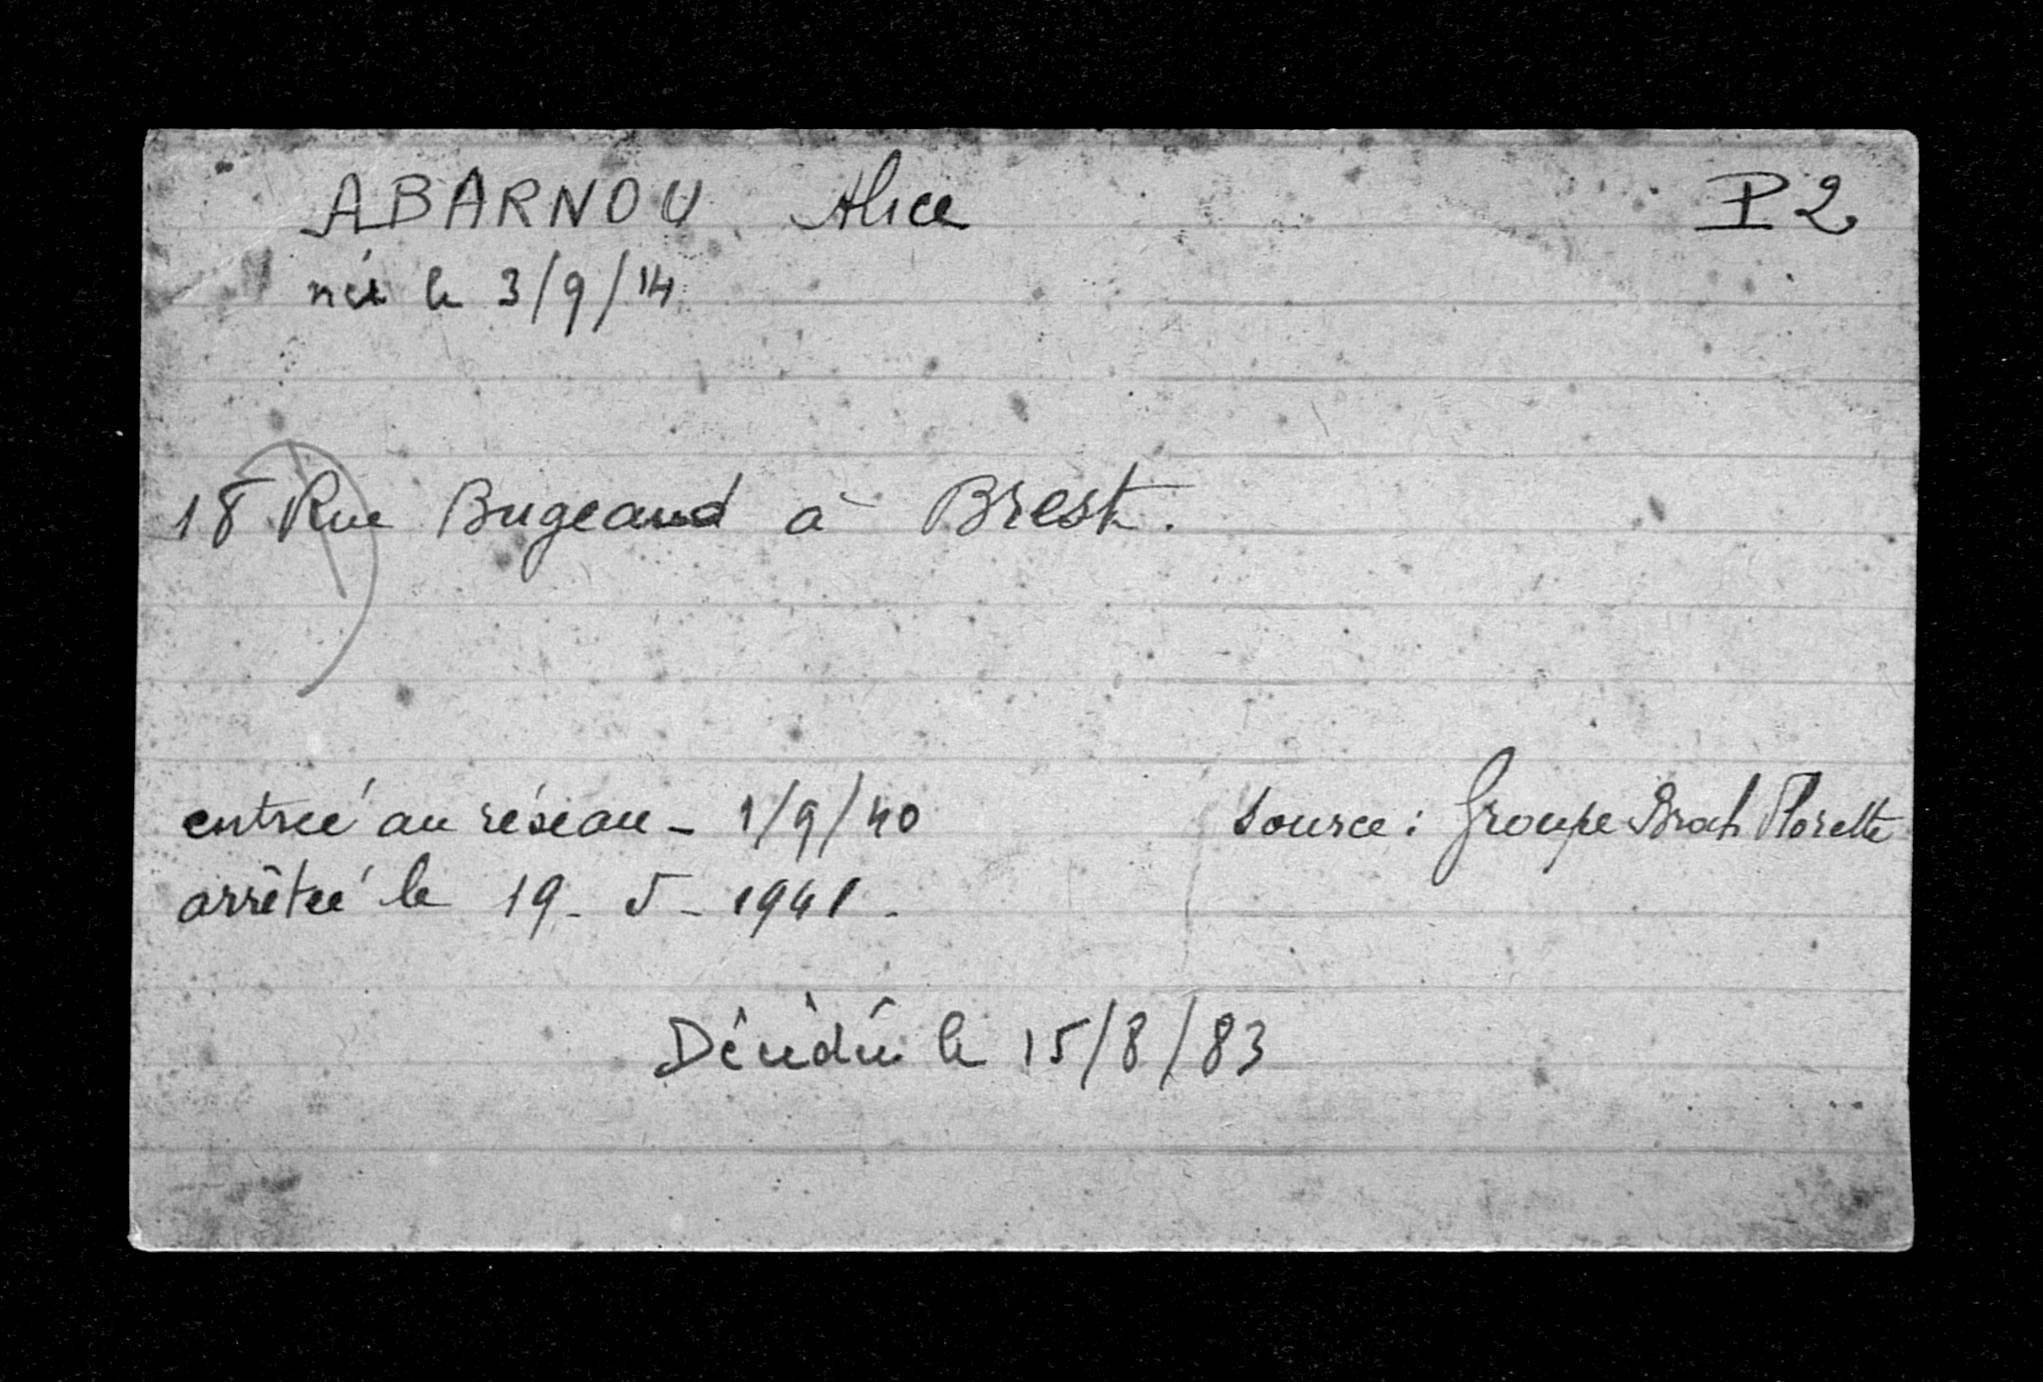 ABARNOU Alice P2
née le 3/9/14
18 Rue Bugeaud à Brest.
entrée au réseau - 1/9/40 source : Groupe
arrêtée le 19 - 5 - 1941 -
Décédée le 15/8/83